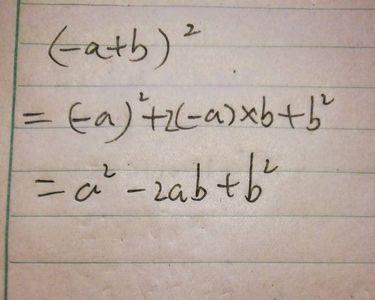 (-a+b)²
= (-a)²+2(-a)×b+b²
= a²-2ab+b²